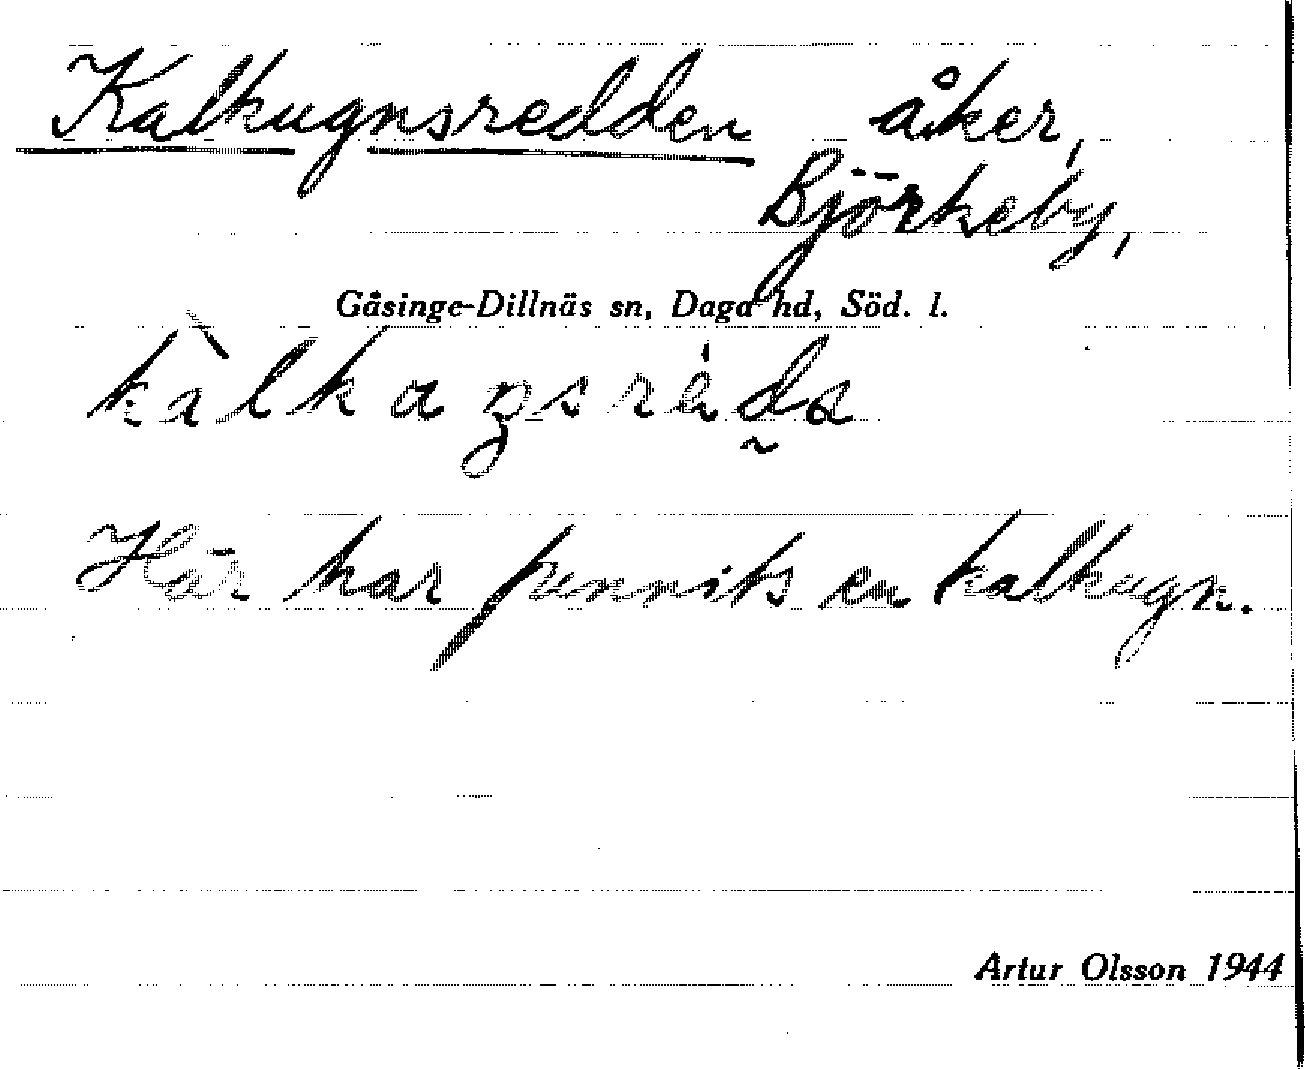 Kalkugnsredden åker,
Björkeby,
Gåsinge-Dillnäs sn, Daga hd, Söd. l.
Här har funnits en kalkugn.
Artur Olsson 1944